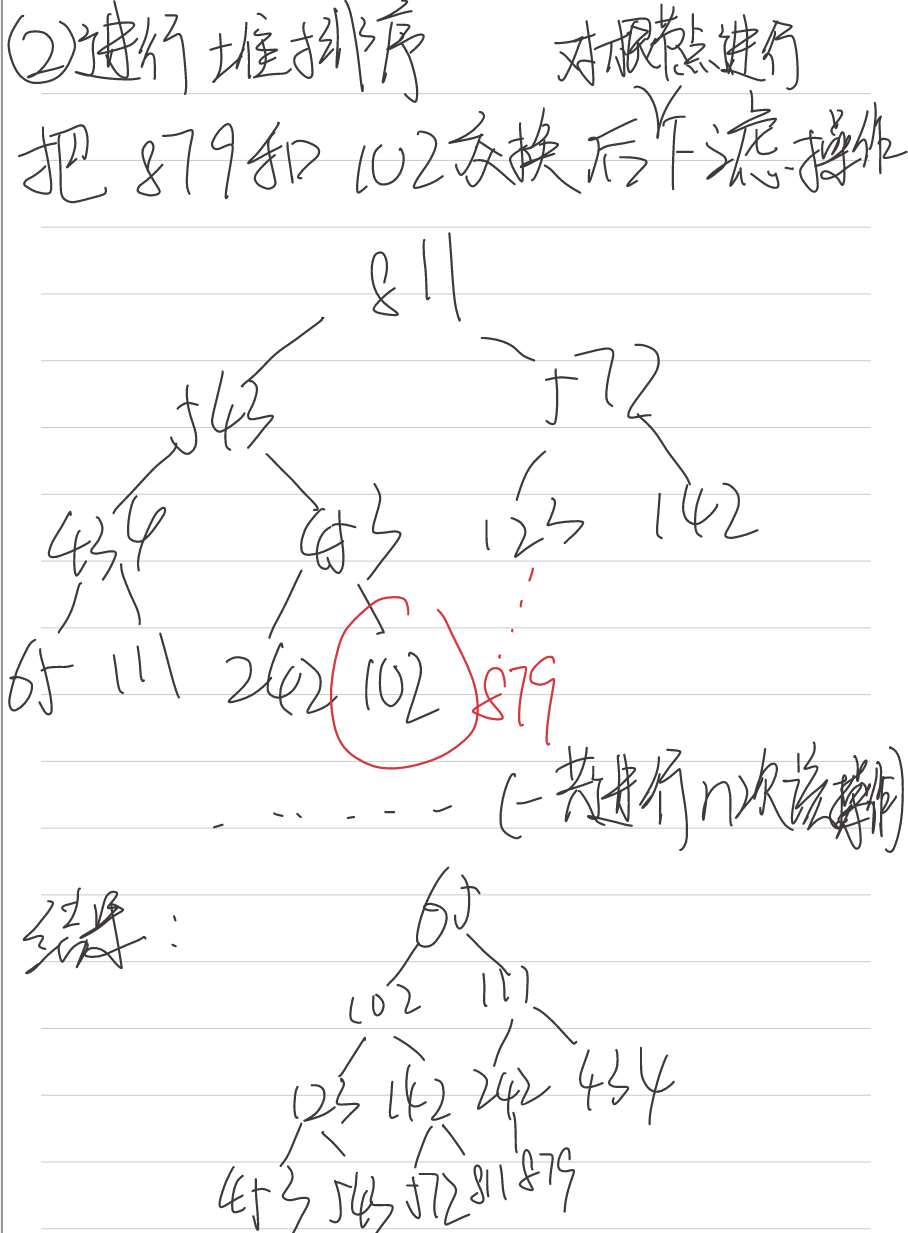 (2)进行堆排序 对根节点进行
把879和102交换后下滤操作
811
543 572
434 453 123 142
65 111 242 102 879
(一共进行n次该操作)
结果:
65
102 111
123 142 242 434
453 543 572 811 879